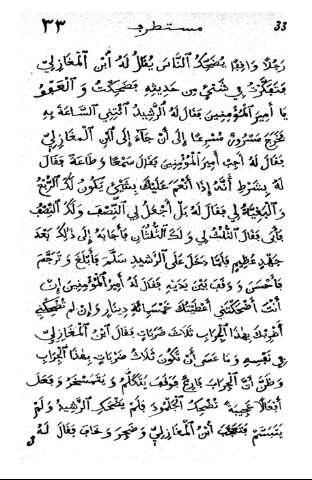 ٣٣ مستطرف 33
رجلا واقفا يضحك الناس يقال له ابن المغازلي
فتفكرت في شئ من حديثه فضحكت والعفو
يا أمير المؤمنين فقال له الرشيد ائتني الساعة به
فخرج مسرور مسرعا إلى أن جاء إلى ابن المغازلي
فقال له أجب أمير المؤمنين فقال سمعا وطاعة فقال
له بشرط أنه إذا أنعم عليك بشئ يكون لك الربع
والبقية لي فقال له بل أجعل لي النصف ولك النصف
فأبى فقال الثلث لي ولك الثلثان فأجابه إلى ذلك بعد
جهد عظيم فلما دخل على الرشيد سلم فأبلغ وترجم
فأحسن ووقف بين يديه فقال له أمير المؤمنين إن
أنت أضحكتني أعطيتك خمسمائة دينار وإن لم تضحكني
أضربك بهذا الجراب ثلاث ضربات فقال ابن المغازلي
في نفسه وما عسى أن تكون ثلاث ضربات بهذا الجراب
وظن أن الجراب فارغ فوقف يتكلم ويتمسخر وفعل
أفعالا عجيبة تضحك الجلمود فلم يضحك الرشيد ولم
يتبسم فتعجب ابن المغازلي وضجر وخاف فقال له